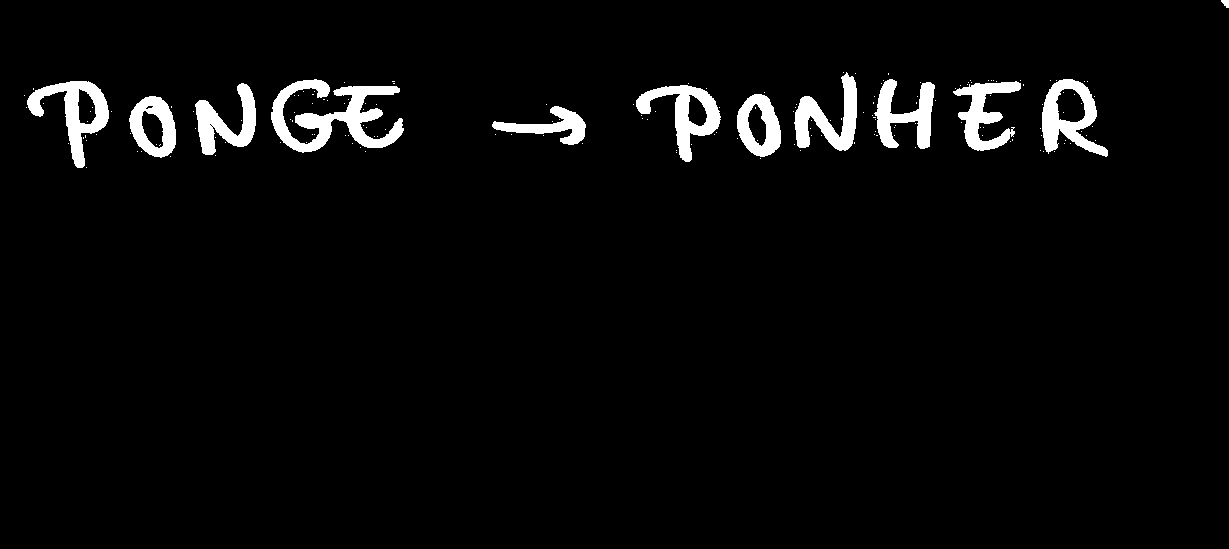 PONGE → PONHER